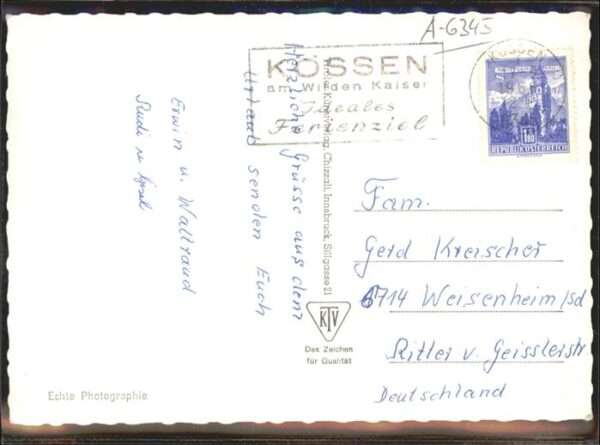 A-6345
KÖSSEN
am Wilden Kaiser
Ideales
Ferienziel
KÖSSEN
1.80
REPUBLIK ÖSTERREICH
Herzliche Grüsse aus dem
Urlaub senden Euch
Erwin u. Waltraud
Chizzali, Innsbruck, Sillgasse 21
KTV
Das Zeichen
für Qualität
Fam.
Gerd Krerscher
6714 Weisenheim/Sd
Ritter v. Geisslerstr.
Deutschland
Echte Photographie